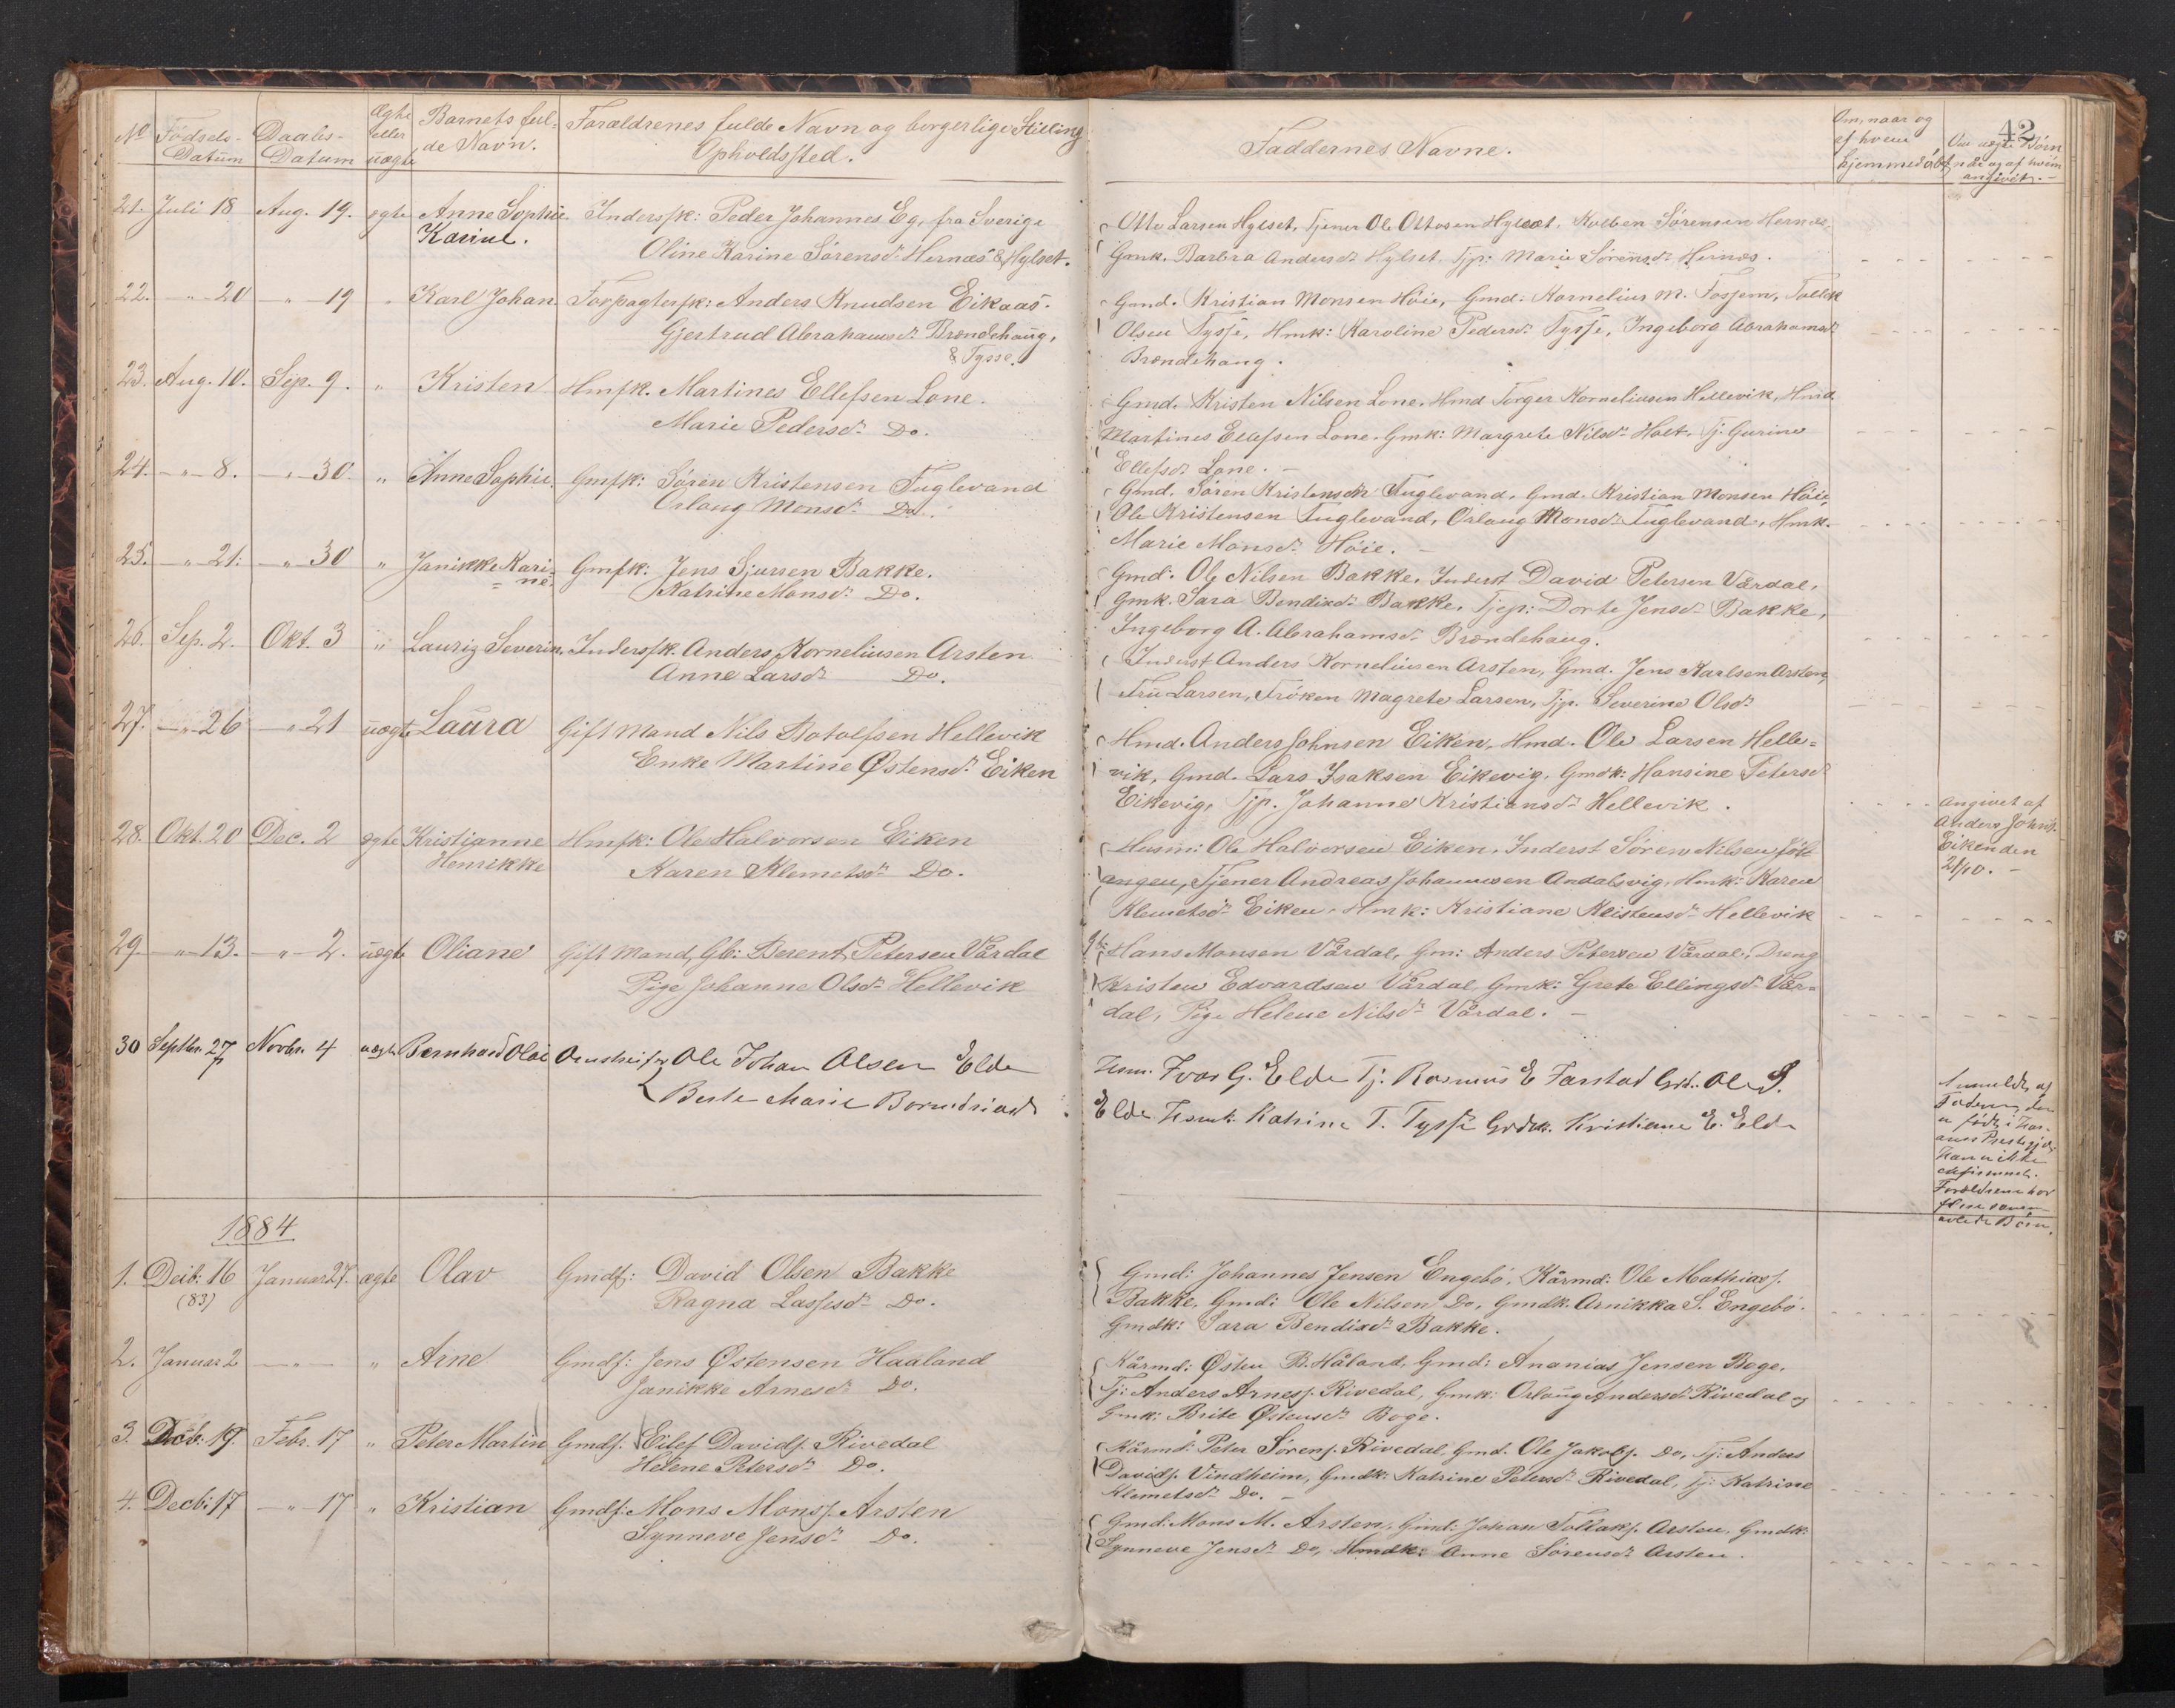 No Fødsels- Daabs- Ægte Barnets ful- Forældrenes fulde Navn og borgerlige Stilling
Datum Datum eller de Navn. Opholdssted.
uægte
21. Juli 18 Aug. 19. ægte Anne Sophie Indersfk: Peder Johannes Eg, fra Sverige
Karine. Oline Karine Sørensdr Hernæs & Hylset.
22. -"- 20 -"- 19 " Karl Johan Forpagterfk: Anders Knudsen Eikaas.
Gjertrud Abrahamsdr Brændehaug,
& Tysse.
23. Aug. 10. Sep. 9. " Kristen Hmfk. Martines Ellefsen Lone.
Marie Pedersdr Do.
24. -"- 8. -"- 30 " Anne Sophie. Gmfk: Søren Kristensen Fuglevand
Orlaug Monsdr Do.
25. -"- 21. -"- 30 " Janikke Kari- Gmfk: Jens Sjursen Bakke.
ne. Katrine Monsdr Do.
26. Sep. 2. Okt. 3 " Lauriz Severin. Indersfk. Anders Korneliusen Arsten
Anne Larsdr Do.
27. -"- 26 -"- 21 uægte Laura Gift Mand Nils Botolfsen Hellevik
Enke Martine Østensdr Eiken
28. Okt. 20 Dec. 2 ægte Kristianne Hmfk: Ole Halvorsen Eiken
Henrikke Karen Klemetsdr Do.
29. -"- 13. -"- 2. uægte Oliane Gift Mand, Gb: Berent Petersen Vårdal
Pige Johanne Olsdr Hellevik
30 Septbr. 27 Novbr. 4 uægte Bernhard Olai Ole Johan Olsen Elde
Berte Marie
1884
1. Decb: 16 Januar 27. ægte Olav Gmdf: David Olsen Bakke
(83) Ragna Lassesdr Do.
2. Januar 2 -"- " Arne Gmdf: Jens Østensen Haaland
Janikke Arnesdr Do.
3. Decb: 19. Febr. 17 " Peter Martin Gmdf. Eilef Davids. Rivedal
Helene Petersdr Do.
4. Decb: 17 -"- 17 " Kristian Gmdf: Mons Monss. Arsten
Synneve Jensdr Do.
42
Faddernes Navne. Om, naar og
af hvem
hjemmedøbt
Om uægte Børn
når og af hvem
angivet.
Otto Larsen Hylset, Tjener Ole Ottosen Hylset, Kolben Sørensen Hernæs,
Gmk. Barbra Andersdr Hylset. Tjp: Marie Sørensdr Hernæs.
Gmd. Kristian Monsen Høie, Gmd: Kornelius M. Fossem, Tollek
Olsen Tysse, Hmk: Karoline Pedersdr Tysse, Ingeborg Abrahamsdr
Brændehaug.
Gmd. Kristen Nilsen Lone, Hmd Torger Korneliusen Hellevik, Hmd
Martines Ellefsen Lone. Gmk: Margrete Nilsdr Holt. Tj. Gurine
Ellefsdr Lone.
Gmd. Søren Kristensen Fuglevand, Gmd. Kristian Monsen Høie
Ole Kristensen Fuglevand, Orlaug Monsdr Fuglevand, Hmk.
Marie Monsdr Høie.
Gmd. Ole Nilsen Bakke, Inderst David Petersen Vårdal,
Gmk. Sara Bendixdr Bakke, Tjep: Dorte Jensdr Bakke,
Ingeborg A. Abrahamsdr Brændehaug.
Inderst Anders Korneliusen Arsten, Gmd. Jens Karlsen Arsten,
Fru Larsen, Frøken Magrete Larsen, Tjp. Severine Olsdr
Hmd. Anders Johnsen Eiken, Hmd. Ole Larsen Helle-
vik, Gmd. Lars Isaksen Eikevig, Gmdk: Hansine Petersdr
Eikevig, Tjp. Johanne Kristiansdr Hellevik.
Angivet af
Anders Johns.
Eiken den
21/10.
Husm: Ole Halvorsen Eiken, Inderst Søren Nilsen
Tjener Andreas Johannesen Andalsvig, Hmk: Karen
Klemetsdr Eiken, Hmk: Kristiane Kristensdr Hellevik
Hans Monsen Vårdal, Gm: Anders Petersen Vårdal, Dreng
Kristen Edvardsen Vårdal, Gmk: Grete Ellingsdr Vår-
dal, Pige Helene Nilsdr Vårdal.
Husm. Ivar G. Elde Tj. Rasmus E Farstad Grd. Ole S.
Elde Husmk. Katrine T. Tysse Grdk. Kristiane E. Elde
Anmeldt af
Faderen, der
er født i
Præstegjæld
Han er ikke
Forældrene har
avlede Børn.
Gmd: Johannes Jensen Engebø, Kårmd: Ole Mathiass.
Bakke, Gmd: Ole Nilsen Do, Gmdk. Arnikka S. Engebø.
Gmdk: Sara Bendixdr Bakke.
Kårmd: Østen B. Håland, Gmd: Ananias Jensen Boge,
Tj: Anders Arness. Rivedal, Gmk: Orlaug Andersdr Rivedal og
Gmk: Brite Østensdr Boge.
Kårmd: Peter Sørens. Rivedal, Gmd. Ole Jakobs. Do, Tj: Anders
Davids. Vindheim, Gmdk: Katrine Petersdr Rivedal, Tj: Katrine
Klemetsdr Do.
Gmd: Mons M. Arsten, Gmd: Johan Tollaks. Arsten, Gmdk:
Synneve Jensdr Do, Hmdk: Anne Sørensdr Arsten.